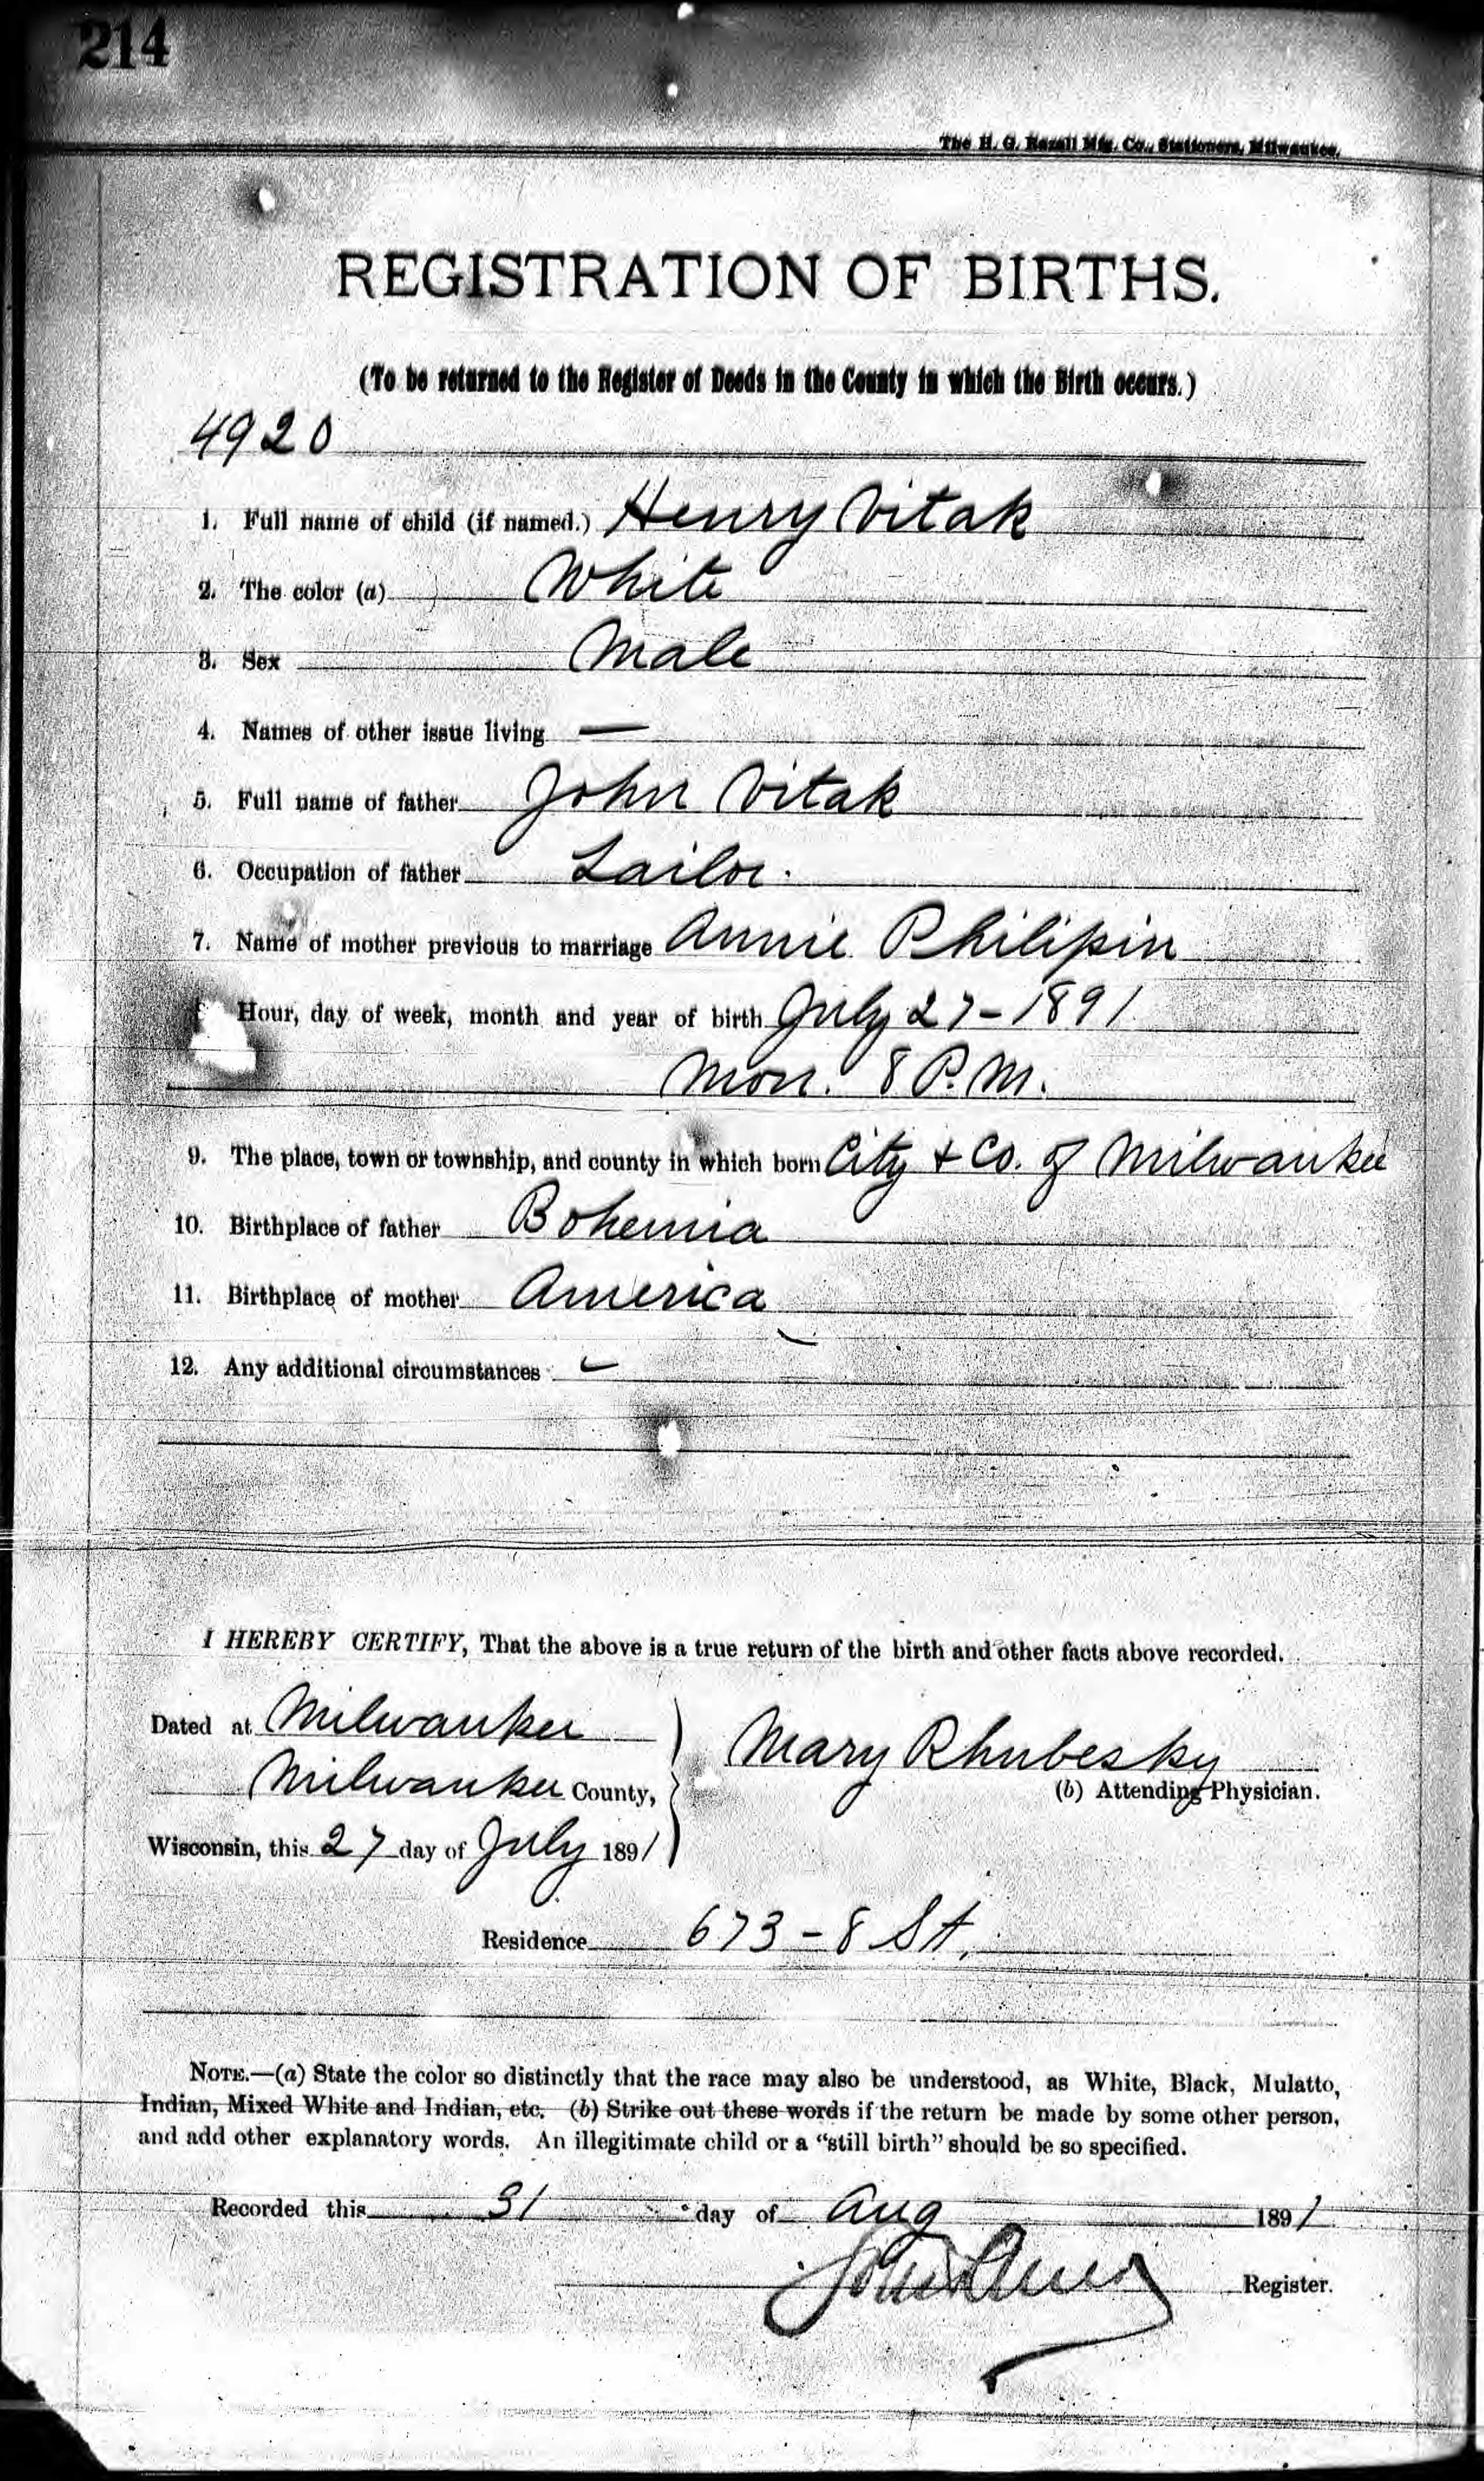 214
The H. G. Razall Mfg. Co., Stationers, Milwaukee.
REGISTRATION OF BIRTHS.
(To be returned to the Register of Deeds in the County in which the Birth occurs.)
4920
1. Full name of child (if named.) Henry Vitak
2. The color (a) White
3. Sex Male
4. Names of other issue living —
5. Full name of father John Vitak
6. Occupation of father Tailor.
7. Name of mother previous to marriage Annie Philipin
Hour, day of week, month and year of birth July 27 - 1891
Mon. 8 P.M.
9. The place, town or township, and county in which born City + Co. of Milwaukee
10. Birthplace of father Bohemia
11. Birthplace of mother America
12. Any additional circumstances -
I HEREBY CERTIFY, That the above is a true return of the birth and other facts above recorded.
Dated at Milwaukee
Mary Rhubesky
Milwaukee County,
(b) Attending Physician.
Wisconsin, this 27 day of July 1891
Residence 673 - 8 St.
NOTE.—(a) State the color so distinctly that the race may also be understood, as White, Black, Mulatto,
Indian, Mixed White and Indian, etc. (b) Strike out these words if the return be made by some other person,
and add other explanatory words. An illegitimate child or a "still birth" should be so specified.
Recorded this 31 day of Aug 1891
Register.